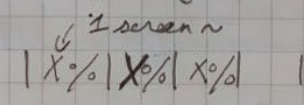 1 screen ~
| X% | X% | X% | |